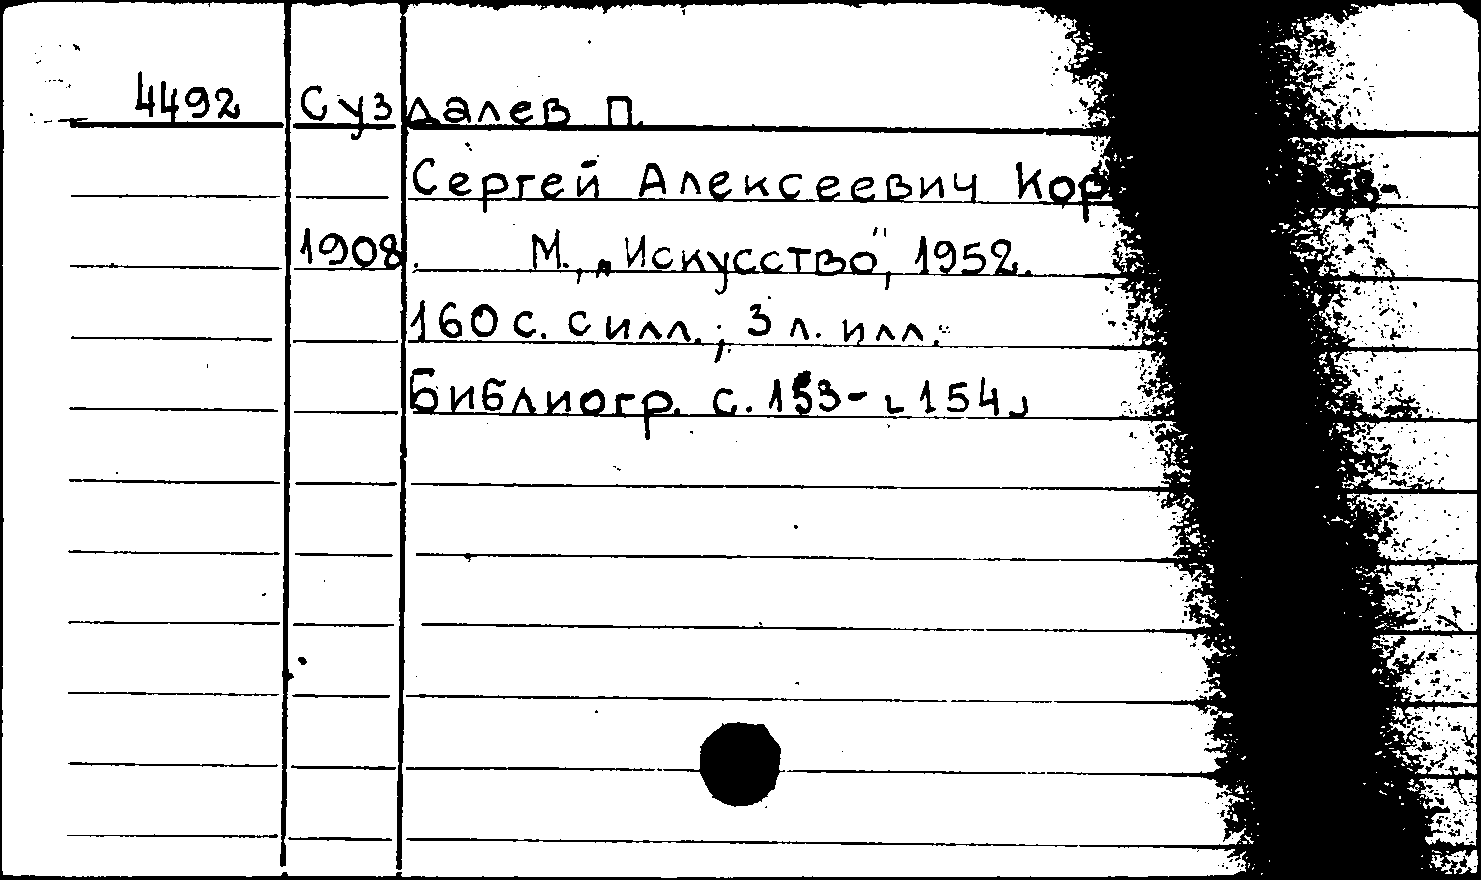 4492 Суздалев П.
Сергей Алексеевич
1908. М., „Искусство", 1952.
160 с. с илл.; 3 л. илл.
Библиогр. с. 153-[154]